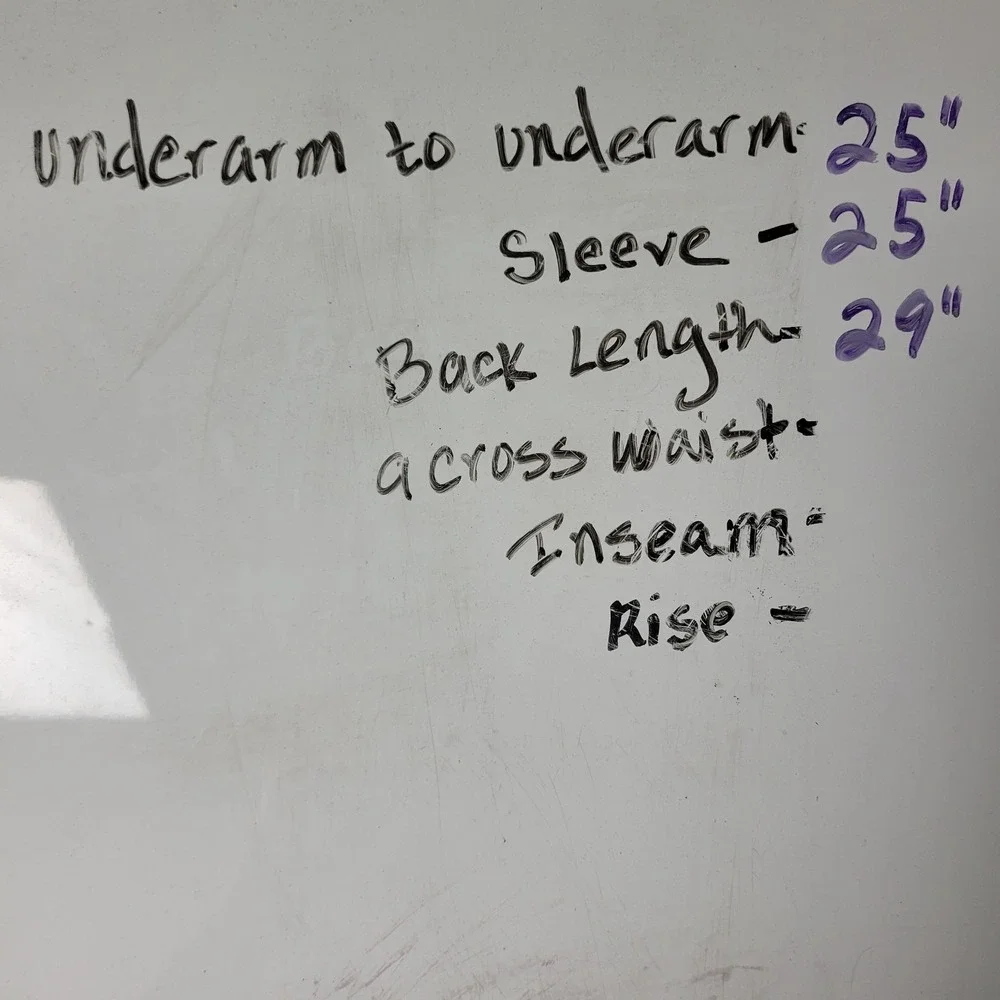 underarm to underarm- 25"
Sleeve - 25"
Back Length- 29"
across waist-
Inseam-
Rise -